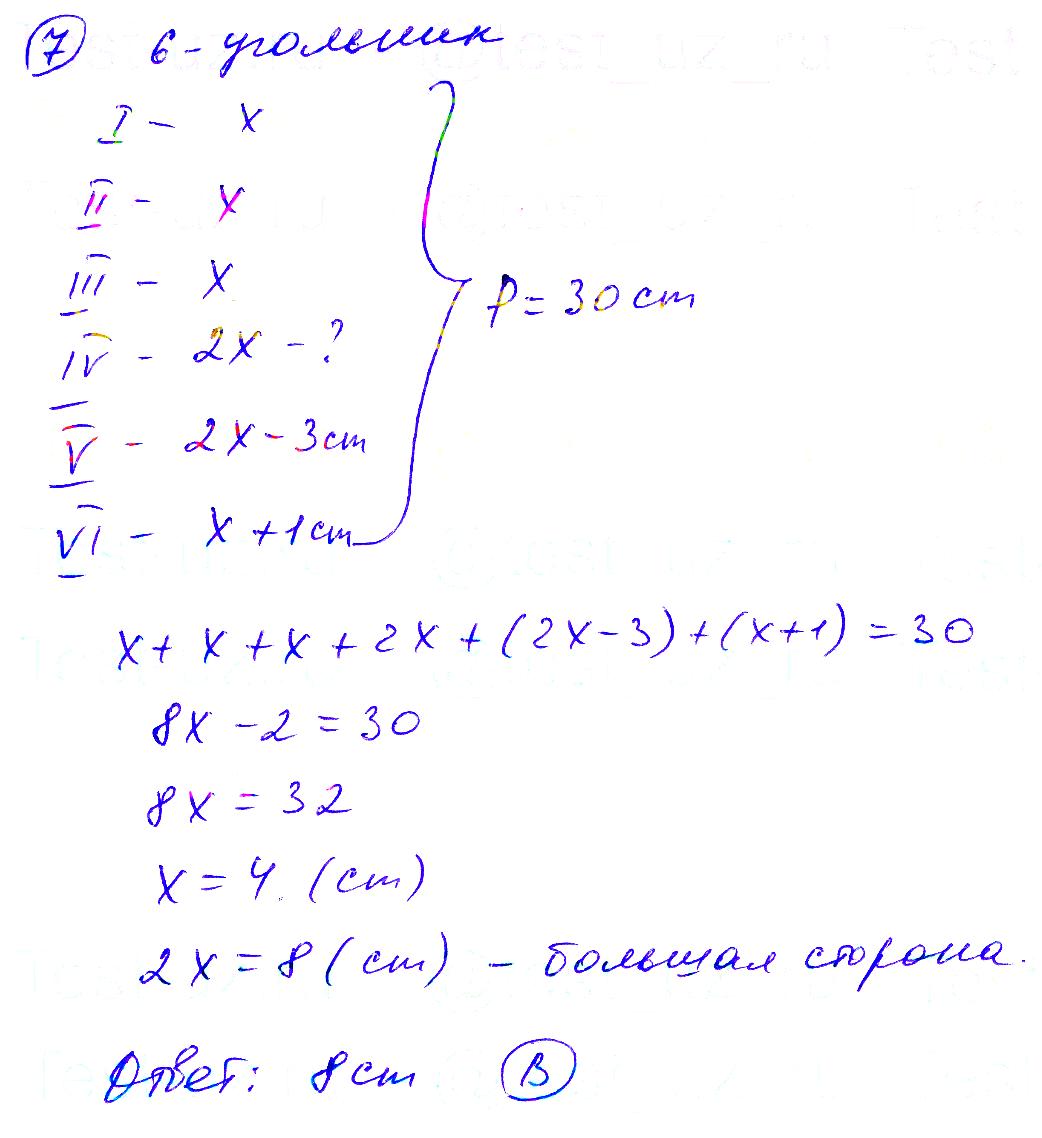 7 6-угольник
I - x
II - x
III - x
IV - 2x - ?
V - 2x - 3 cm
VI - x + 1 cm
P = 30 cm
x + x + x + 2x + (2x - 3) + (x + 1) = 30
8x - 2 = 30
8x = 32
x = 4. (cm)
2x = 8 (cm) - большая сторона.
Ответ: 8 cm B